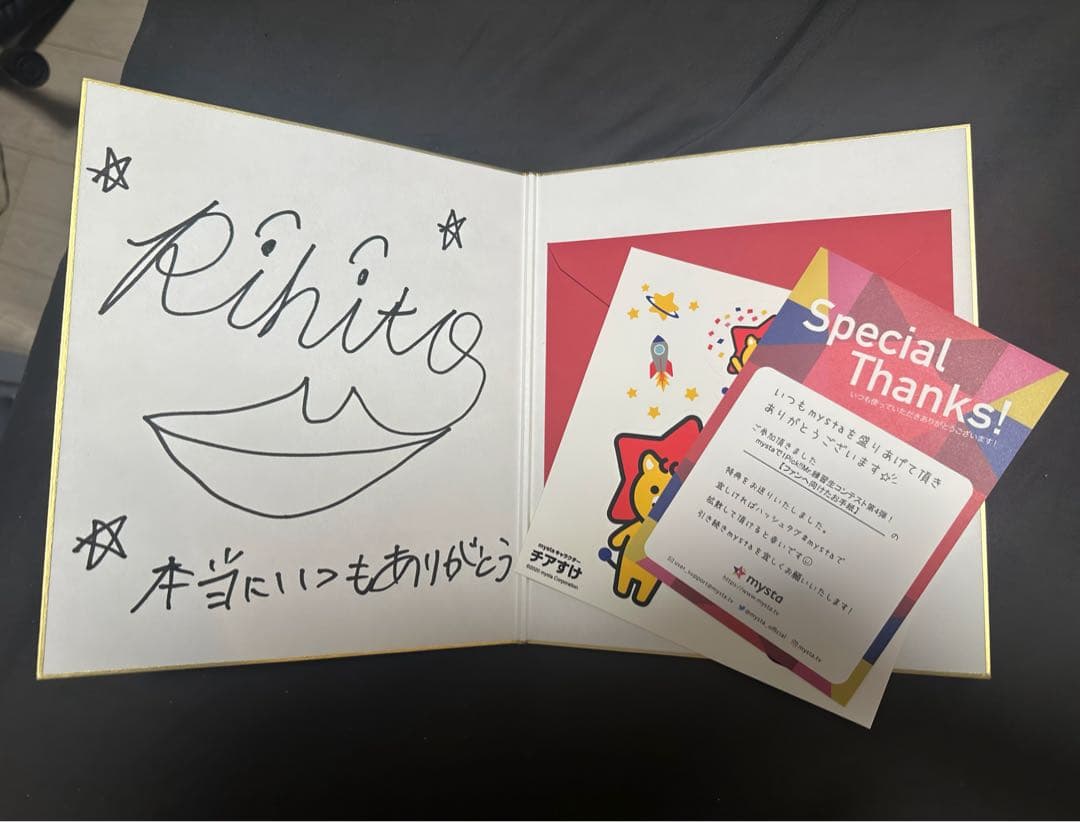 Rihito
本当にいつもありがとう
mystaキャラクター
チアすけ
©2020 mysta Corporation
Special
Thanks!
いつも使っていただきありがとうございます!
いつもmystaを盛りあげて頂き
ありがとうございます☆
ご参加頂きました
mystaで!Pick!!Mr.練習生コンテスト第4弾!
【ファンへ向けたお手紙】 の
特典をお送りいたしました。
宜しければハッシュタグ#mystaで
拡散して頂けると幸いです☺
引き続きmystaを宜しくお願いいたします!
mysta
https://www.mysta.tv
user_support@mysta.tv @mysta_official mysta.tv